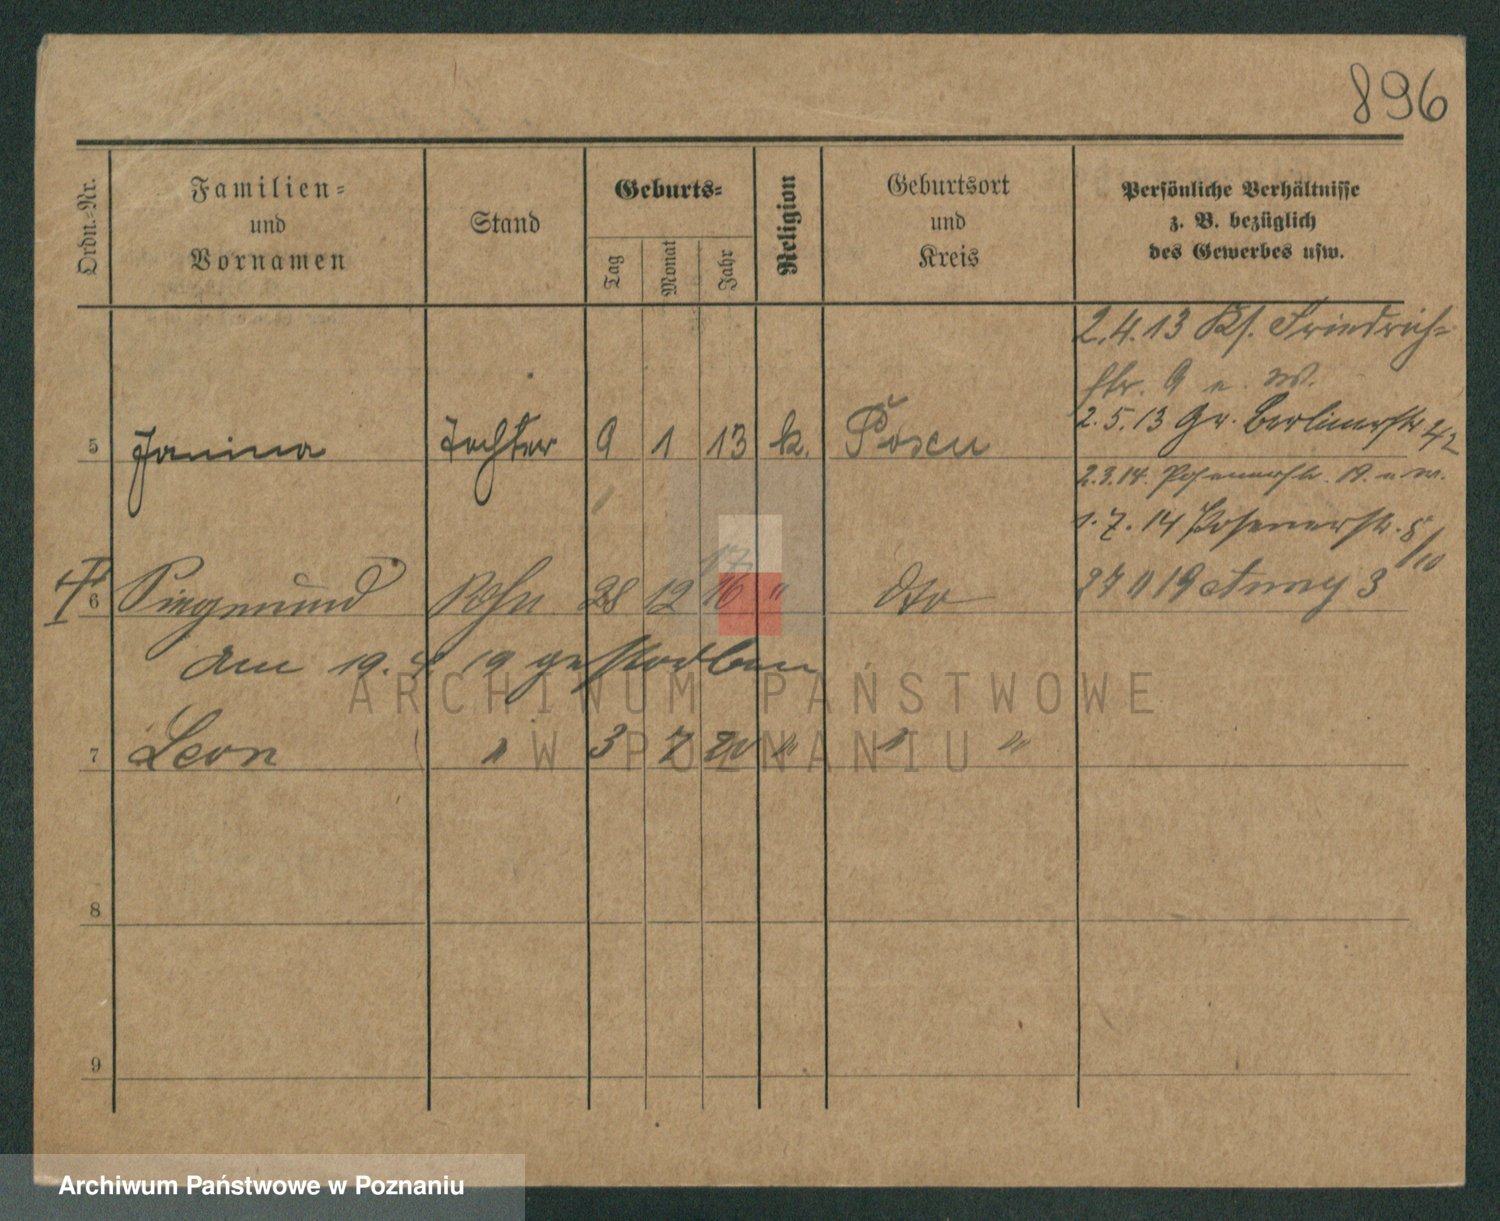 896
Ordn.-Nr.
Familien-
und
Vornamen
Stand
Geburts-
Tag
Monat
Jahr
Religion
Geburtsort
und
Kreis
Persönliche Verhältnisse
z. B. bezüglich
des Gewerbes usw.
2.4.13 Friedrich-
str. 9
2.5.13 Gr. Berlinerstr 42
5 Janina Tochter 9 1 13 k. Posen
2.3.14.
1.7.14 Posenerstr. 5/10
6 Siegmund Sohn 28 12 16 " dto 27 11 19 3
17
Am 19. 19 gestorben
7 Leon " 3 7 20 " " "
8
9
ARCHIWUM PAŃSTWOWE
W POZNANIU
Archiwum Państwowe w Poznaniu